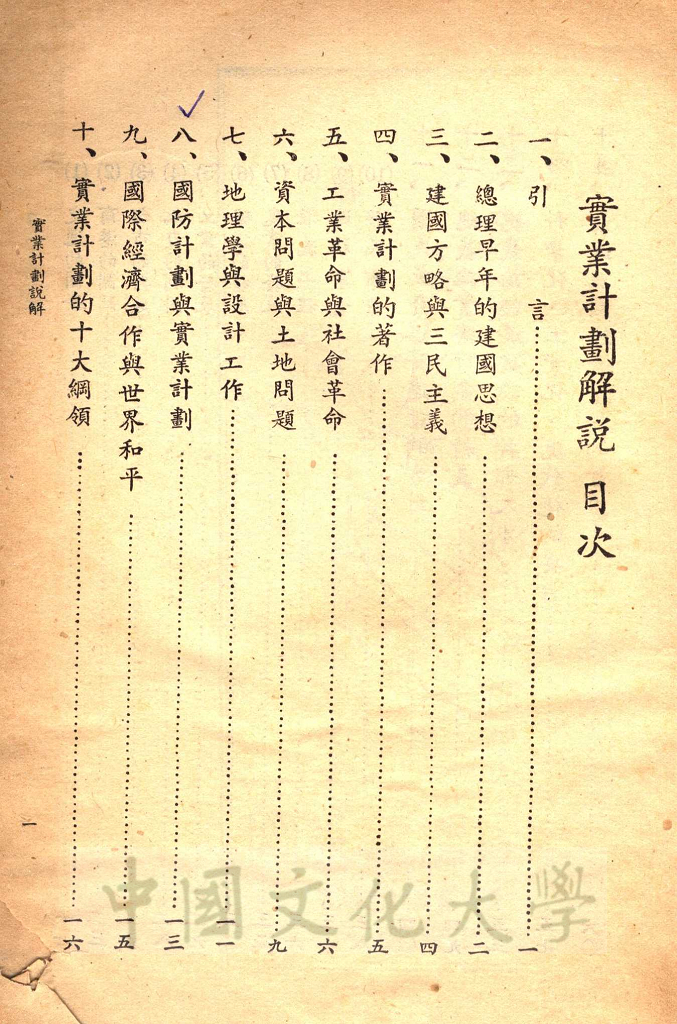 實業計劃解說 目次
一、引　　言…………………………一
二、總理早年的建國思想…………………………二
三、建國方略與三民主義…………………………四
四、實業計劃的著作…………………………五
五、工業革命與社會革命…………………………六
六、資本問題與土地問題…………………………九
七、地理學與設計工作…………………………一一
八、國防計劃與實業計劃…………………………一三
九、國際經濟合作與世界和平…………………………一五
十、實業計劃的十大綱領…………………………一六
實業計劃說解
一
中國文化大學